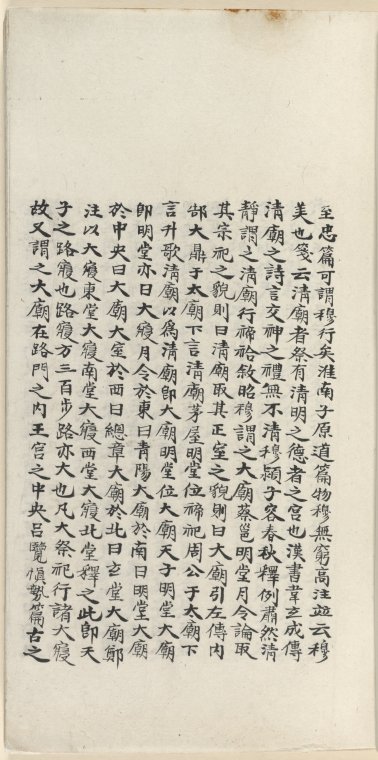 至忠篇可謂穆行矣淮南子原道篇物穆無窮高注竝云穆
美也箋云清廟者祭有清明之德者之宮也漢書韋玄成傳
清廟之詩言交神之禮無不清穆潁子容春秋釋例肅然清
靜謂之清廟行禘祫敘昭穆謂之大廟蔡邕明堂月令論取
其宗祀之貌則曰清廟取其正室之貌則曰大廟引左傳内
郜大鼎于太廟下言清廟茅屋明堂位禘祀周公于太廟下
言升歌清廟以為清廟卽大廟明堂位大廟天子明堂大廟
卽明堂亦曰大寢月令於東曰青陽大廟於南曰明堂大廟
於中央曰大廟大室於西曰總章大廟於北曰玄堂大廟鄭
注以大寢東堂大寢南堂大寢西堂大寢北堂釋之此卽天
子之路寢也路寢方三百步路亦大也凡大祭祀行諸大寢
故又謂之大廟在路門之内王宮之中央呂覽慎勢篇古之